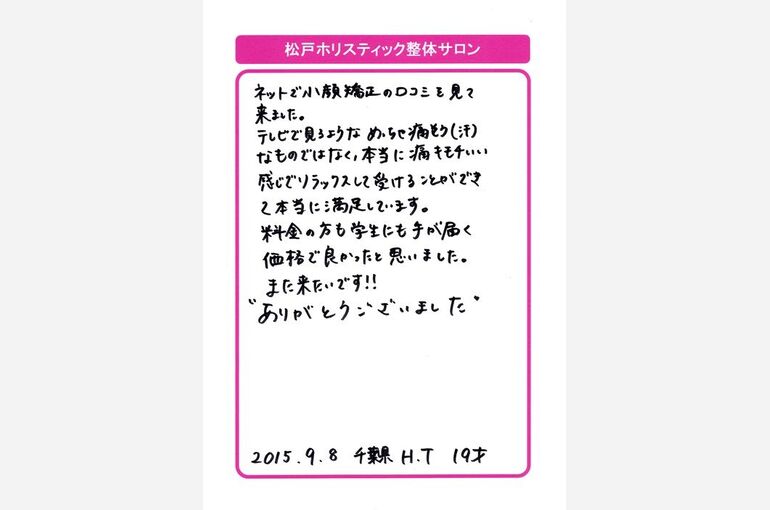 松戸ホリスティック整体サロン
ネットで小顔矯正の口コミを見て
来ました。
テレビで見るような めっちゃ痛そう(汗)
なものではなく、本当に痛キモチいい
感じでリラックスして受けることができ
て本当に満足しています。
料金の方も学生にも手が届く
価格で良かったと思いました。
また来たいです!!
"ありがとうございました"
2015.9.8 千葉県 H.T 19才